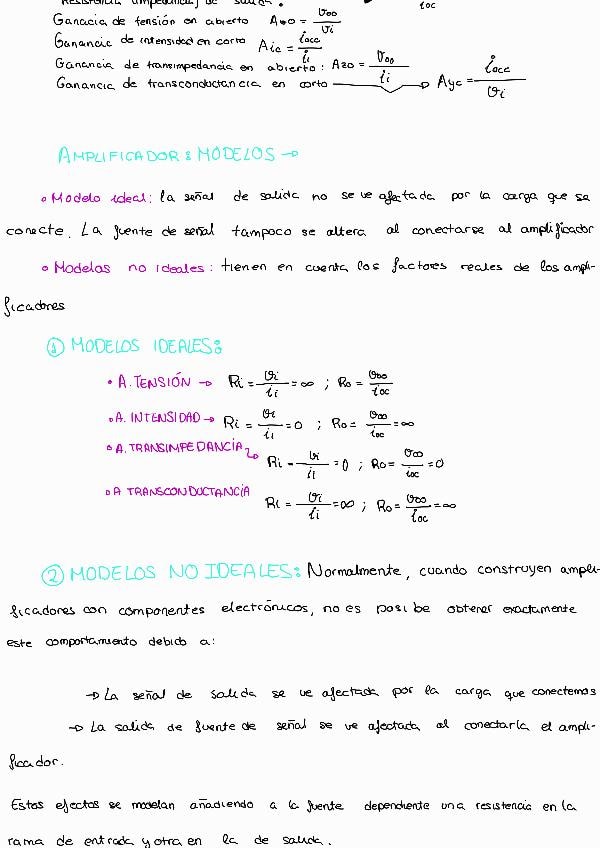 Resistencia (impedancia) de salida :
ioc
Ganacia de tensión en abierto Avo = voo/vi
Ganancie de intensidad en corto Aic = iocc/ii
Ganancia de transimpedancia en abierto : Azo = voo/ii
Ganancia de transconductancia en corto → Ayc = iocc/vi
AMPLIFICADOR : MODELOS →
• Modelo ideal : la señal de salida no se ve afectada por la carga que se
conecte. La fuente de señal tampoco se altera al conectarse al amplificador
• Modelos no ideales : tienen en cuenta los factores reales de los ampli-
ficadores
① MODELOS IDEALES :
• A. TENSIÓN → Ri = vi/ii = ∞ ; Ro = voo/ioc
• A. INTENSIDAD → Ri = vi/ii = 0 ; Ro = voo/ioc = ∞
• A. TRANSIMPEDANCIA → Ri = vi/ii = 0 ; Ro = voo/ioc = 0
• A TRANSCONDUCTANCIA Ri = vi/ii = ∞ ; Ro = voo/ioc = ∞
② MODELOS NO IDEALES : Normalmente, cuando construyen ampli-
ficadores con componentes electrónicos, no es posi be obtener exactamente
este comportamiento debido a :
→ La señal de salida se ve afectada por la carga que conectemos
→ La salida de fuente de señal se ve afectada al conectarla el ampli-
ficador.
Estos efectos se modelan añadiendo a la fuente dependiente una resistencia en la
rama de entrada y otra en la de salida.